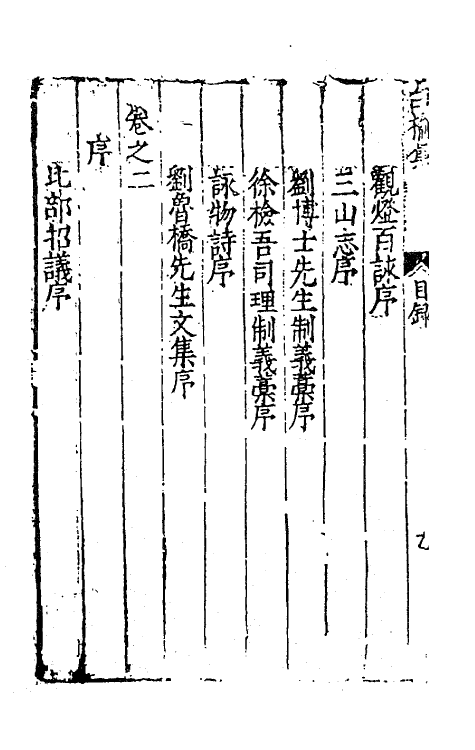 榆集 目錄
觀燈百詠序
三山志序
劉博士先生制義藁序
徐檢吾司理制義藁序
詠物詩序
劉魯橋先生文集序
卷之二
序
比部招議序